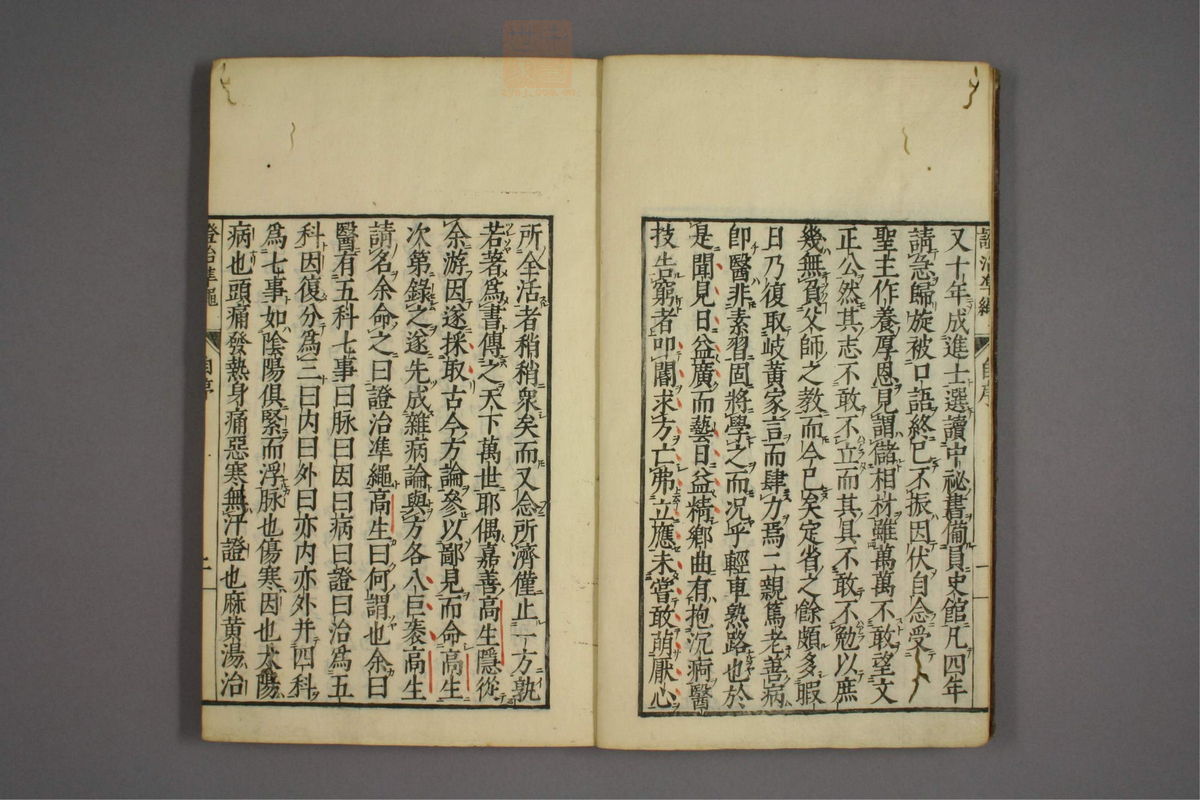 又十年成進士選讀中祕書備員史館凡四年
請急歸旋被口語終已不振因伏自念受
聖主作養厚恩見謂儲相材雖萬萬不敢望文
正公然其志不敢不立而其具不敢不勉以庶
幾無負父師之教而今已矣定省之餘頗多暇
日乃復取岐黃家言而肆力焉二親篤老善病
卽醫非素習固將學之而况乎輕車熟路也於
是聞見日益廣而藝日益精鄉曲有抱沉痾醫
技告窮者叩閽求方亡弗立應未嘗敢萌厭心
所全活者稍稍衆矣而又念所濟僅止一方孰
若著爲書傳之天下萬世耶偶嘉善高生隱從
余游因遂採取古今方論參以鄙見而命高生
次第錄之遂先成雜病論與方各八巨袠高生
請名余命之曰證治準繩高生曰何謂也余曰
醫有五科七事曰脉曰因曰病曰證曰治爲五
科因復分爲三曰内曰外曰亦内亦外并四科
爲七事如陰陽俱緊而浮脉也傷寒因也太陽
病也頭痛發熱身痛惡寒無汗證也麻黄湯治
證治準繩 自序 二